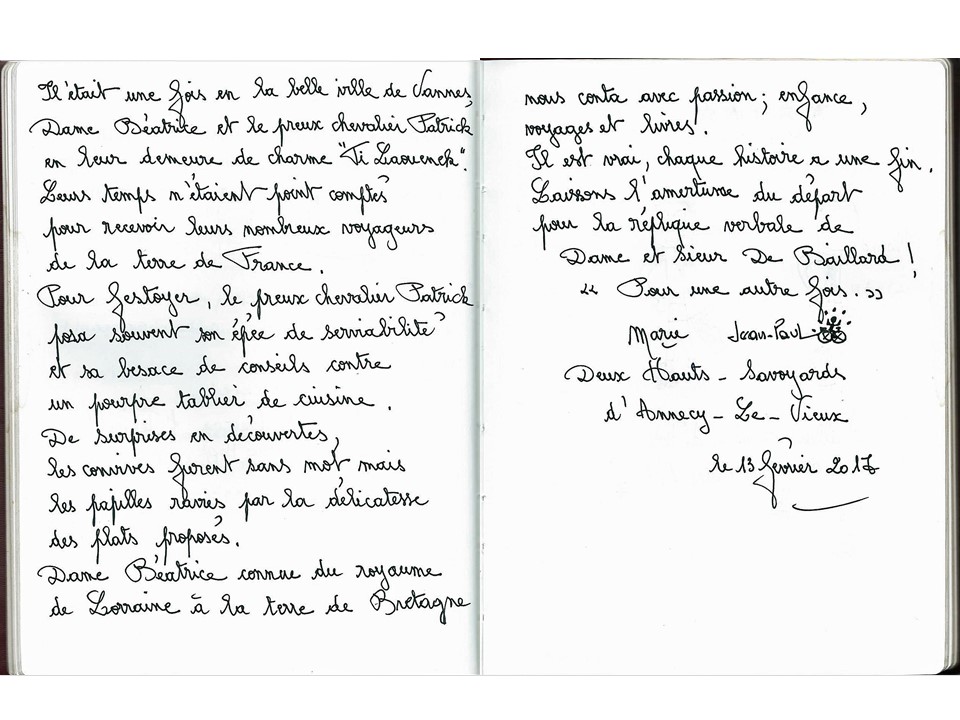 Il était une fois en la belle ville de Vannes,
Dame Béatrice et le preux chevalier Patrick
en leur demeure de charme "Ti Laouenek".
Leurs temps n'étaient point comptés
pour recevoir leurs nombreux voyageurs
de la terre de France.
Pour festoyer, le preux chevalier Patrick
posa souvent son épée de serviabilité
et sa besace de conseils contre
un pourpre tablier de cuisine.
De surprises en découvertes,
les convives furent sans mot mais
les papilles ravies par la délicatesse
des plats proposés.
Dame Béatrice connue du royaume
de Lorraine à la terre de Bretagne
nous conta avec passion ; enfance,
voyages et livres.
Il est vrai, chaque histoire a une fin.
Laissons l'amertume du départ
pour la réplique verbale de
Dame et Sieur De Baillard !
« Pour une autre fois. »
Marie Jean-Paul
Deux Hauts-Savoyards
d'Annecy-Le-Vieux
le 13 février 2017